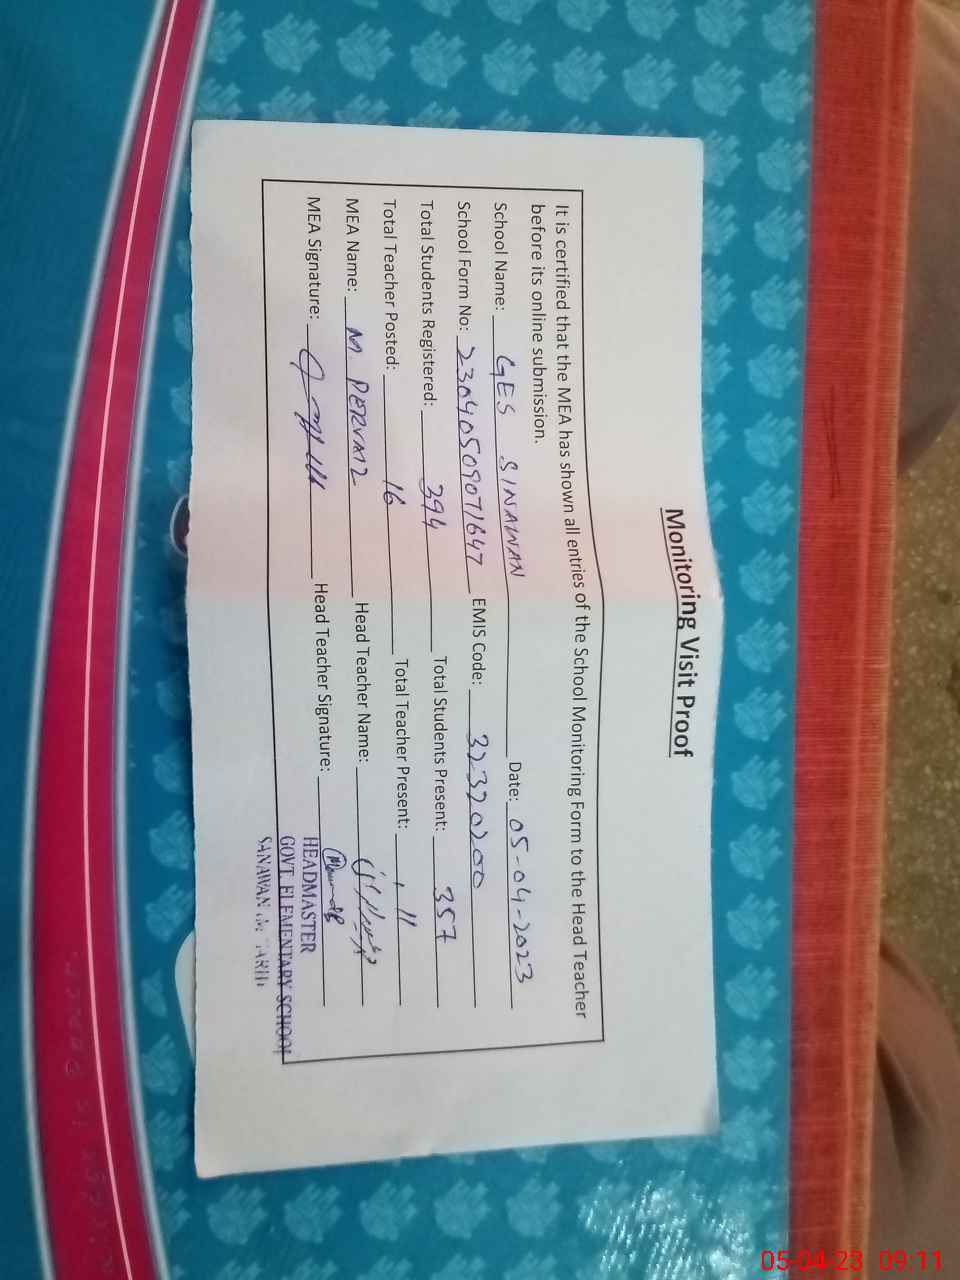 Monitoring Visit Proof
It is certified that the MEA has shown all entries of the School Monitoring Form to the Head Teacher
before its online submission.
School Name: GES SINAWAN Date: 05-04-2023
School Form No: 23040509071647 EMIS Code: 32320200
Total Students Registered: 394 Total Students Present: 357
Total Teacher Posted: 16 Total Teacher Present: 11
MEA Name: M. PERVAIZ Head Teacher Name:
MEA Signature: Head Teacher Signature:
HEADMASTER
GOVT. ELEMENTARY SCHOOL
SANAWAN
05-04-23 09:11